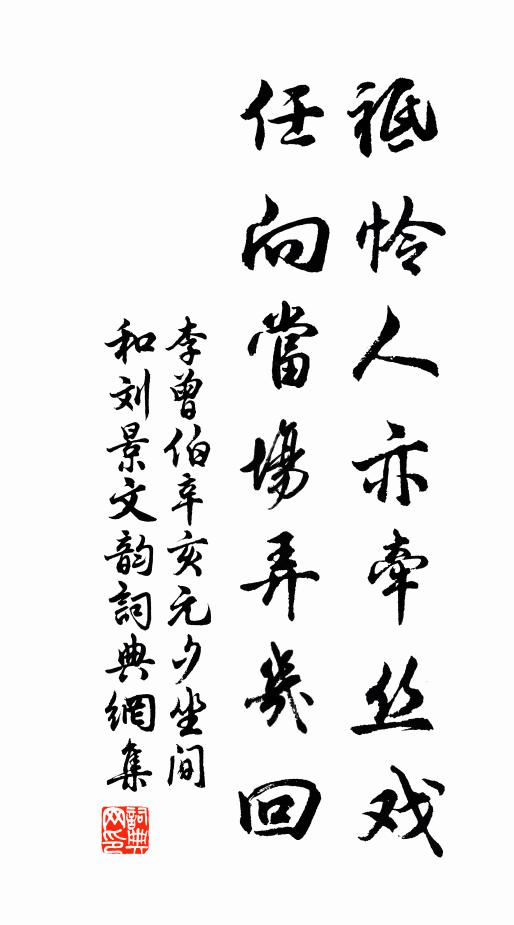 祗怜人亦牵丝戏
任向當場弄幾回
李曾伯辛亥元夕坐间
和刘景文韵詞典網集
詞典
网印